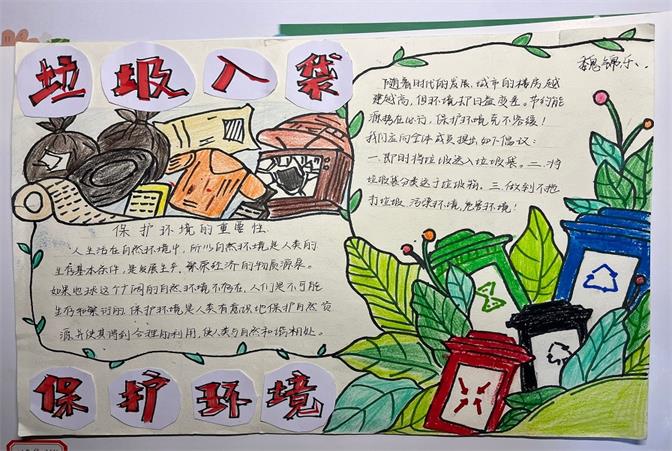 垃圾入袋
随着时代的发展，城市的楼房越
建越高，但环境却日益变差。节约能
源势在必行，保护环境克不容缓！
我们应向全体成员提出如下倡议：
一.即时将垃圾送入垃圾袋。二.将
垃圾袋分类送于垃圾物。三.做到不抛
打垃圾.污保环境,危害环境！
保护环境的重要性
人生活在自然环境中，所以自然环境是人类的
生存基本条件，是发展生产、繁荣经济的物质源泉。
如果地球这个广阔的自然环境不存在，人们是不可能
生存和繁衍的.保护环境是人类有意识地保护自然资
源并使其得到合理的利用，使人类与自然和谐相处。
保护环境